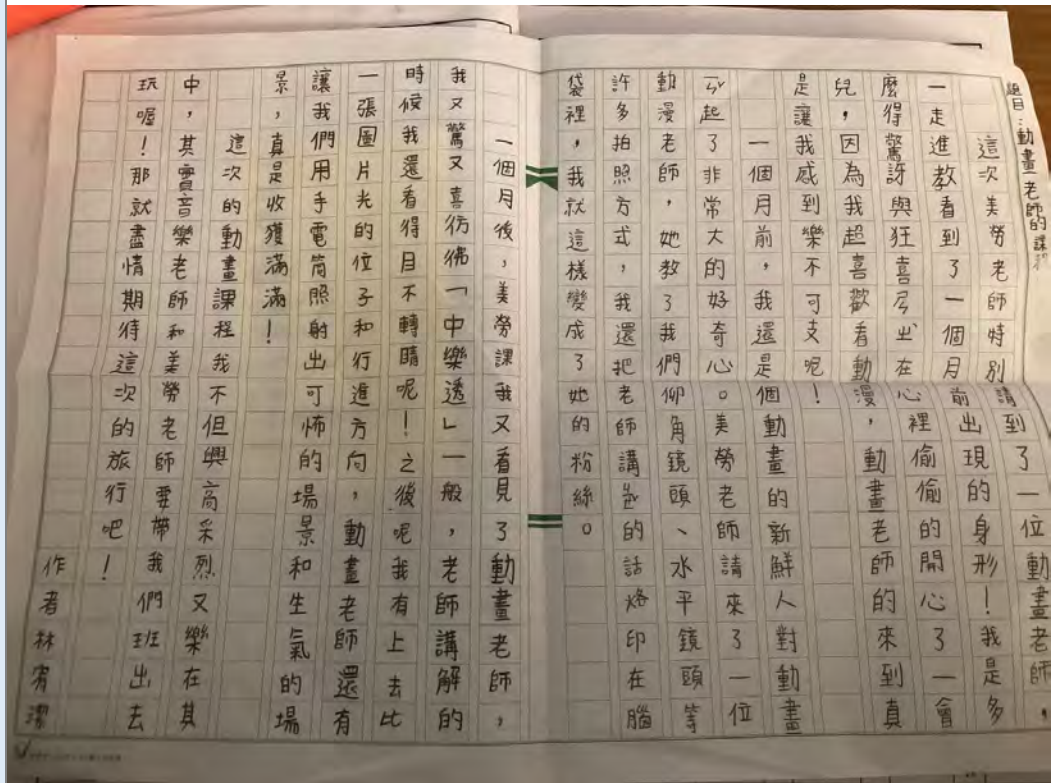 題目:動畫老師的課程
這次美勞老師特別請到了一位動畫老師,
一走進教看到了一個月前出現的身形!我是多
麼得驚訝與狂喜在心裡偷偷的開心了一會
兒,因為我超喜歡看動漫,動畫老師的來到真
是讓我感到樂不可支呢!
一個月前,我還是個動畫的新鮮人對動畫
起了非常大的好奇心。美勞老師請來了一位
動漫老師,她教了我們仰角鏡頭、水平鏡頭等
許多拍照方式,我還把老師講的話烙印在腦
袋裡,我就這樣變成了她的粉絲。
一個月後,美勞課我又看見了動畫老師,
我又驚又喜彷彿「中樂透」一般,老師講解的
時候我還看得目不轉睛呢!之後呢我有上去比
一張圖片光的位子和行進方向,動畫老師還有
讓我們用手電筒照射出可怖的場景和生氣的場
景,真是收獲滿滿!
這次的動畫課程我不但興高采烈又樂在其
中,其實音樂老師和美勞老師要帶我們班出去
玩喔!那就盡情期待這次的旅行吧!
作者林